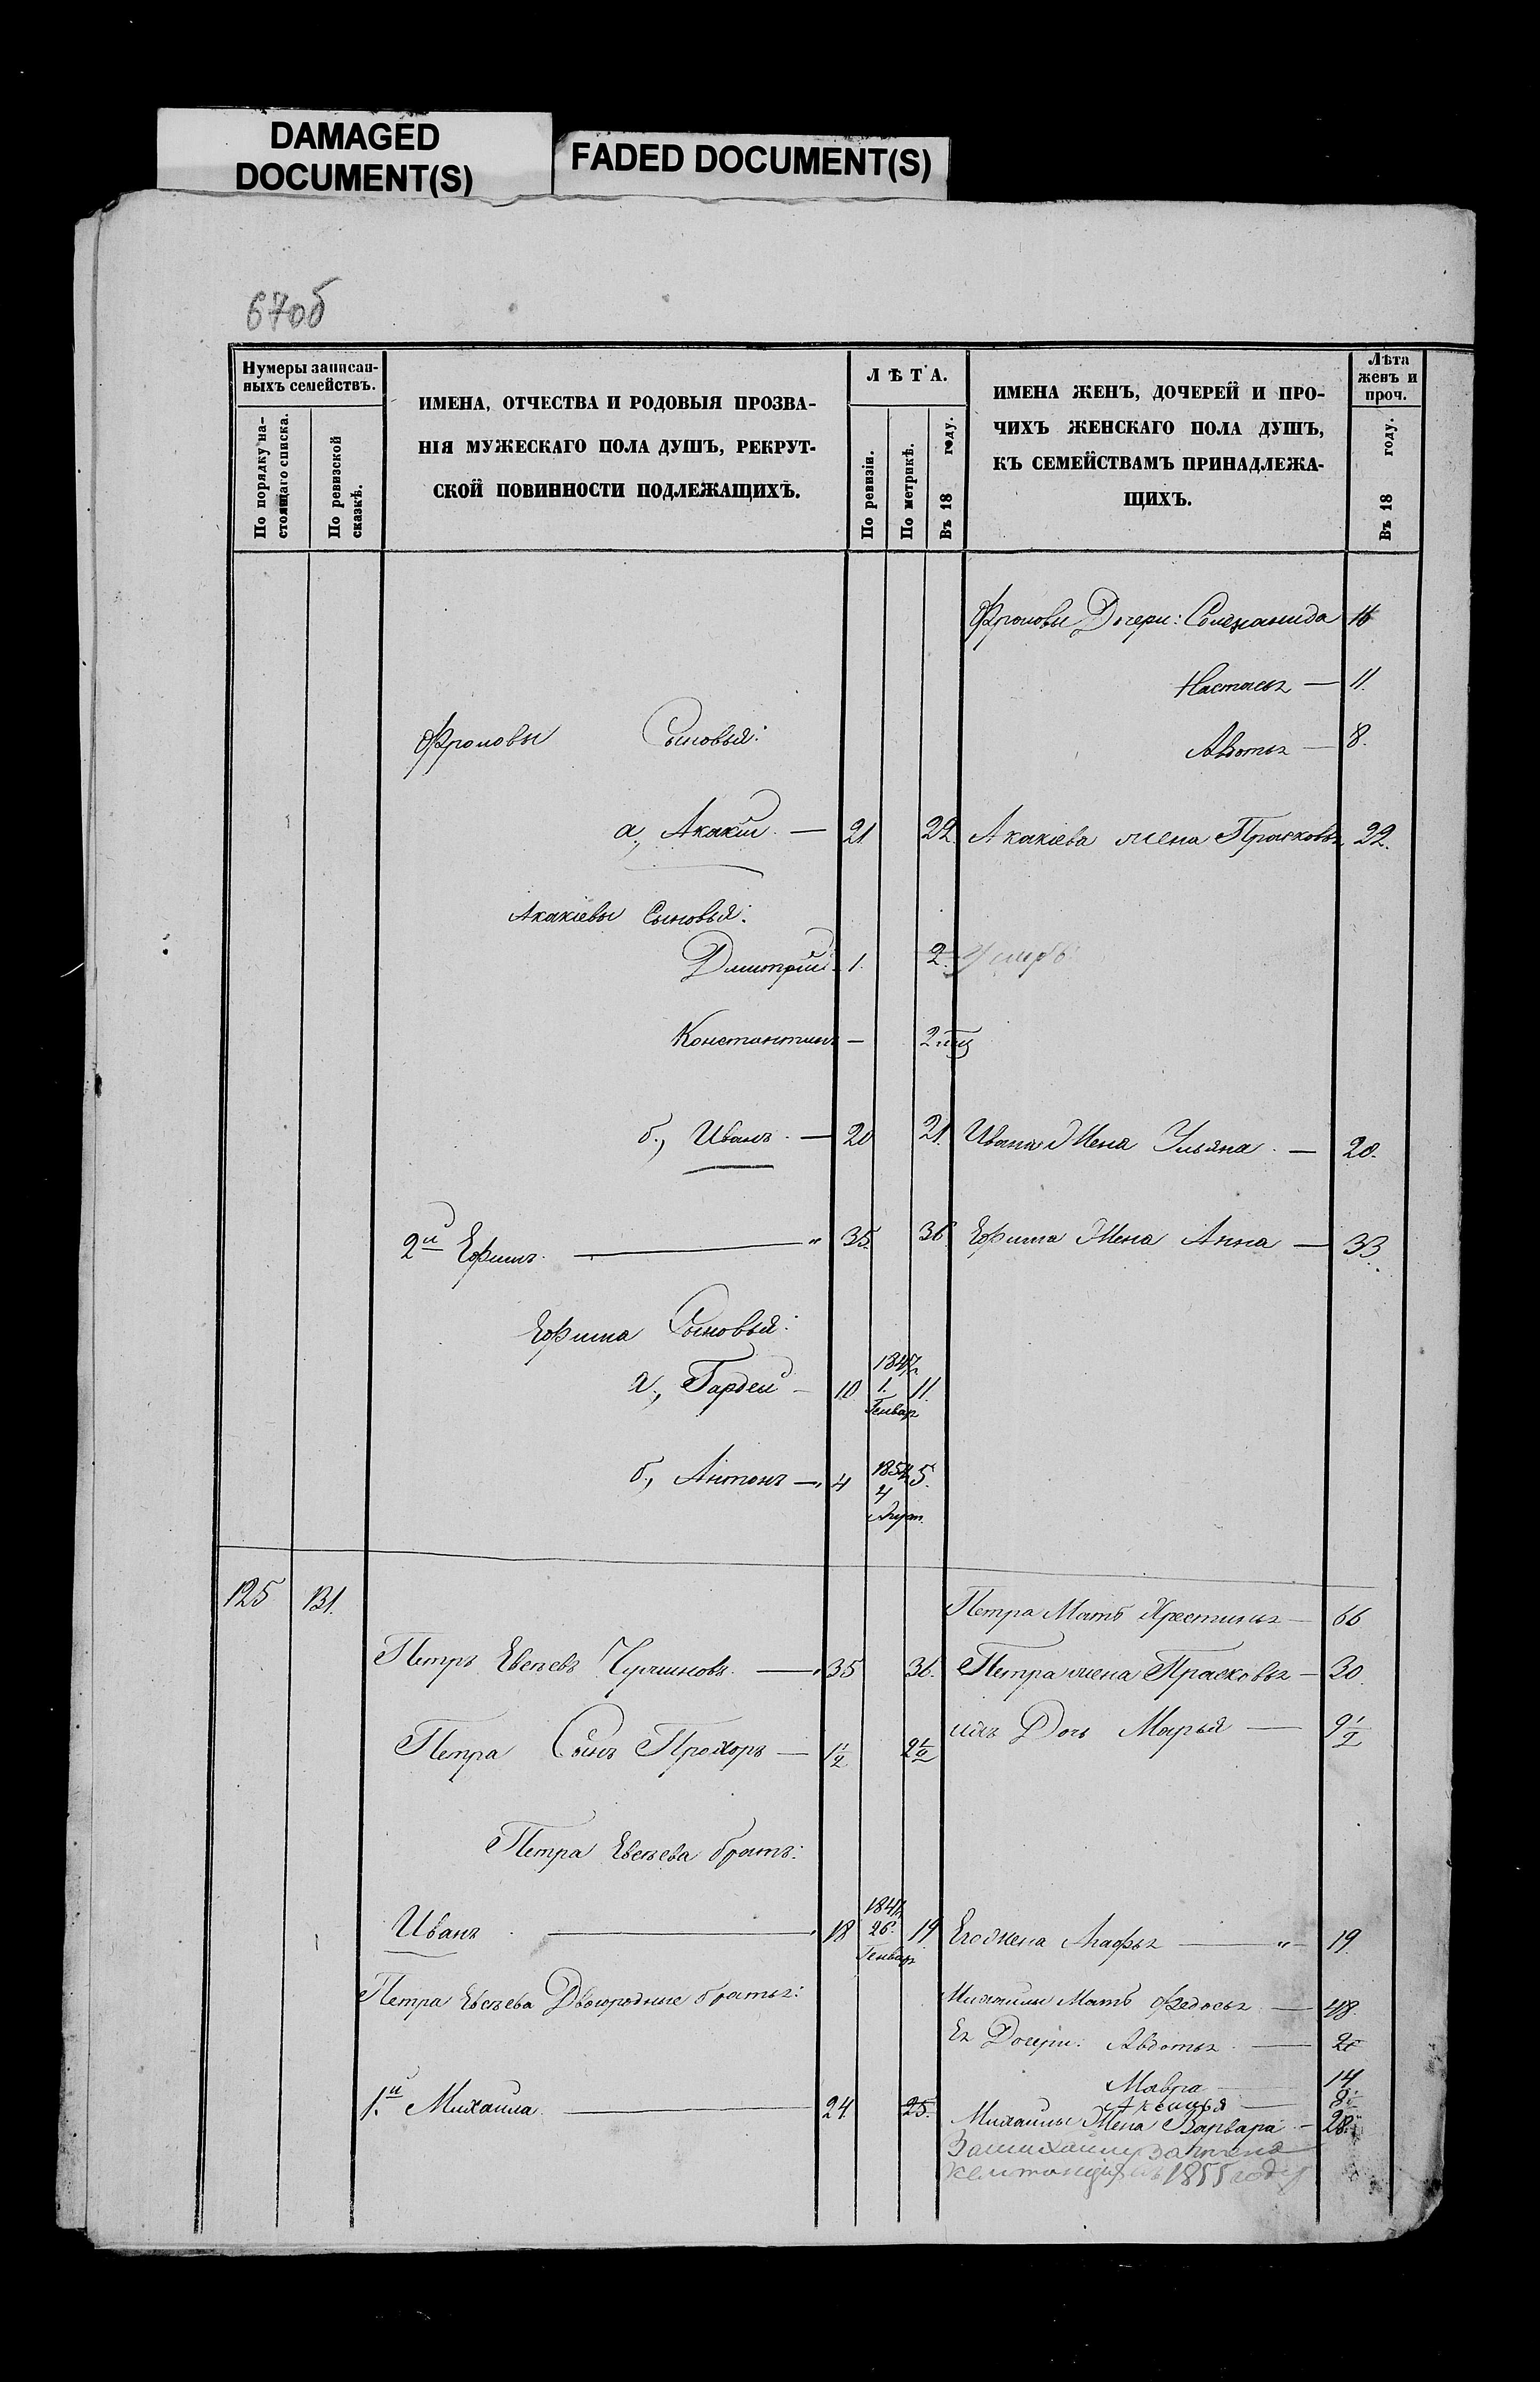 DAMAGED
DOCUMENT(S)
FADED DOCUMENT(S)
67об
Нумеры записан-
ныхъ семействъ.
По порядку на-
стоящаго списка.
По ревизской
сказкѣ.
ИМЕНА, ОТЧЕСТВА И РОДОВЫЯ ПРОЗВА-
НІЯ МУЖЕСКАГО ПОЛА ДУШЪ, РЕКРУТ-
СКОЙ ПОВИННОСТИ ПОДЛЕЖАЩИХЪ.
ЛѢТА.
По ревизіи.
По метрикѣ.
Въ 18 году.
ИМЕНА ЖЕНЪ, ДОЧЕРЕЙ И ПРО-
ЧИХЪ ЖЕНСКАГО ПОЛА ДУШЪ,
КЪ СЕМЕЙСТВАМЪ ПРИНАДЛЕЖА-
ЩИХЪ.
Лѣта
женъ и
проч.
Въ 18 году.
Фроловы Дочери: 16
Настасья — 11.
Фроловы Сыновья:
Авдотья — 8.
а., Акакій. — 21 22. Акакіева жена Прасковья 22.
Акакіевы Сыновья:
Дмитрій. 1. 2. Умеръ
Константинъ — 2 мц
б., Иванъ. — 20 21. Ивана Жена Ульяна. — 20.
2й Ефимъ. — " 35. 36. Ефима Жена Анна — 33.
Ефима Сыновья:
а., Гардей — 10 1847 1. Генвар 11.
б., Антонъ — 4 4 5.
125 131.
Петра Мать Хрестинья — 66
Петръ Евсѣевъ — 35 36. Петра жена Прасковья — 30.
ихъ Дочь Марья — 9 1/2
Петра Сынъ Прохоръ — 1 1/2 2 1/2
Петра Евсѣева братъ:
Иванъ — 18 26. Генвар 19 Его жена Агафья — " — 19.
Петра Евсѣева Двоюродные братья:
Михаилы Мать Федосья — 48.
Ея Дочери: Авдотья. —
Мавра — 14
Аксинья — 8.
1.й Михаила. — 24. 25. Михаилы Жена Варвара — 28.
За Михаилу зачтена
квитанція въ 1855 году